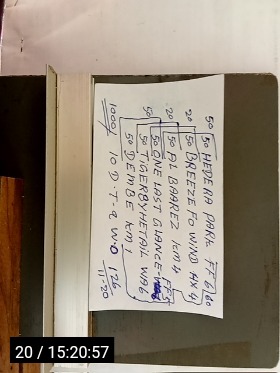 50 50 HEDERA PARK FF6/60
20 50 BREEZE FO WIND HX4
20 50 AL BAAREZ KM4
50 ONE LAST GLANCE FF5
50 50 TIGERBYHETAIL WA6
50 DEMBE KM1
1000/ 10 D.T.Q W.O 126
11-20
20 / 15:20:57